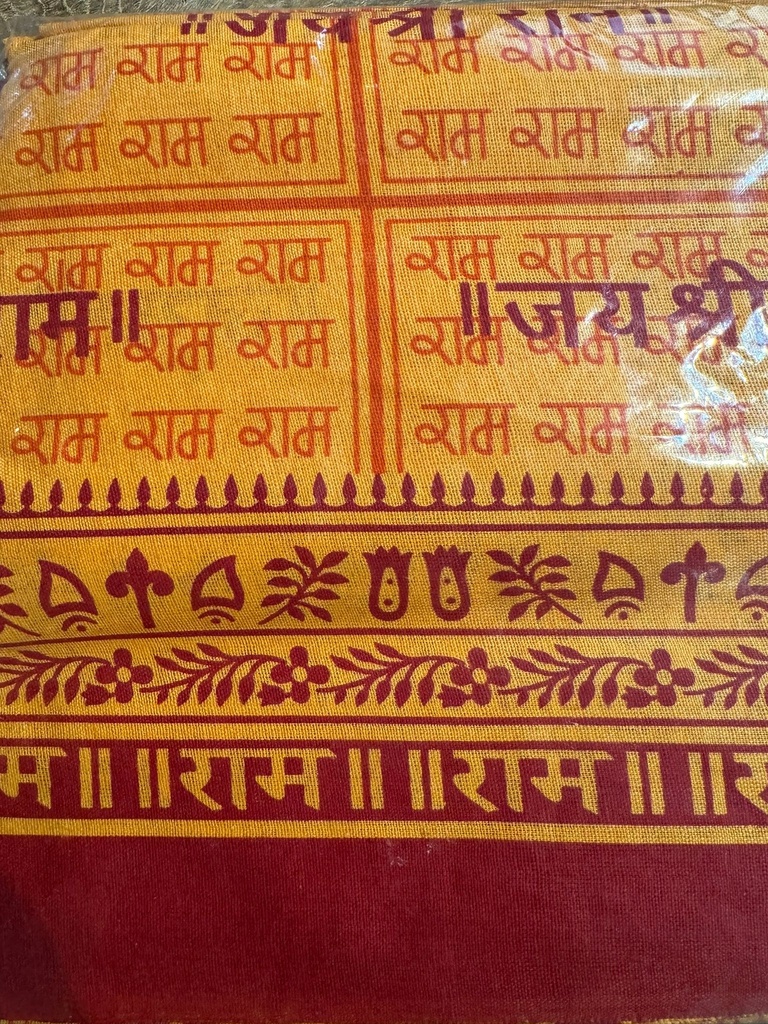 ॥जय श्री राम॥
राम राम राम राम राम राम
राम राम राम राम राम राम
राम राम राम राम राम राम
राम॥ ॥जय श्री
राम राम राम राम राम
राम राम राम राम राम राम
म॥ ॥राम॥ ॥राम॥ ॥